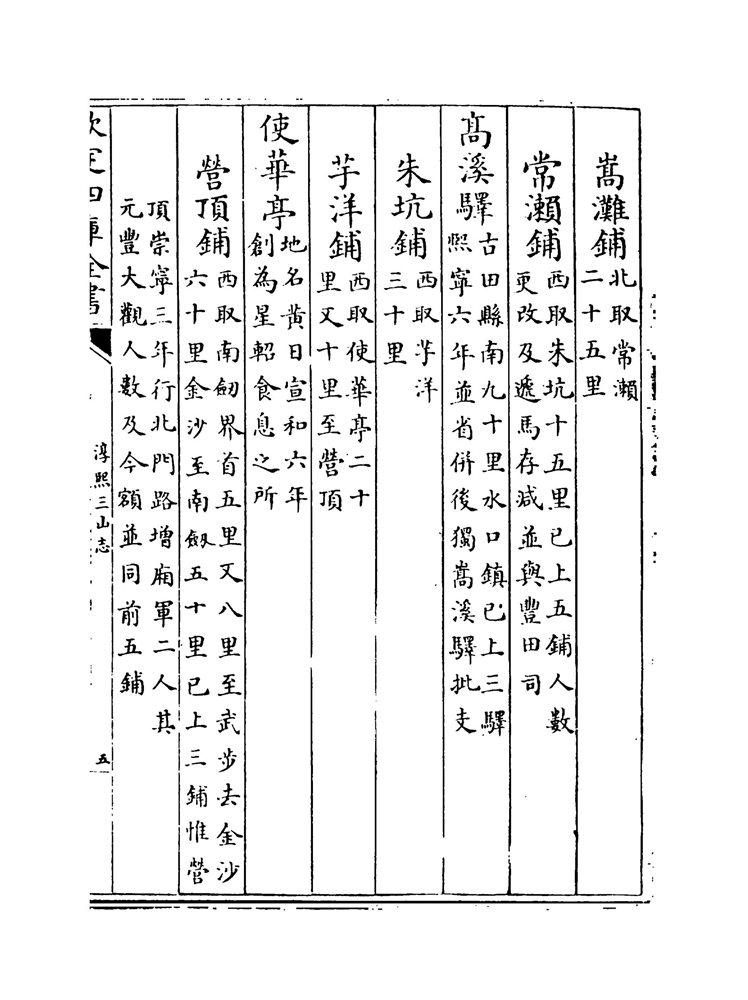 嵩灘鋪北取常瀬二十五里
常瀬鋪西取朱坑十五里已上五鋪人數更改及遞馬存减並與豐田司
髙溪驛古田縣南九十里水口鎮已上三驛熙寧六年並省併後獨嵩溪驛批支
朱坑鋪西取芋洋三十里
芋洋鋪西取使華亭二十里又十里至營頂
使華亭地名黄日宣和六年創為星軺食息之所
營頂鋪西取南劒界首五里又八里至武步去金沙六十里金沙至南劒五十里已上三鋪惟營
頂崇寧三年行北門路增廂軍二人其元豐大觀人數及今額並同前五鋪
欽定四庫全書
淳熙三山志
五